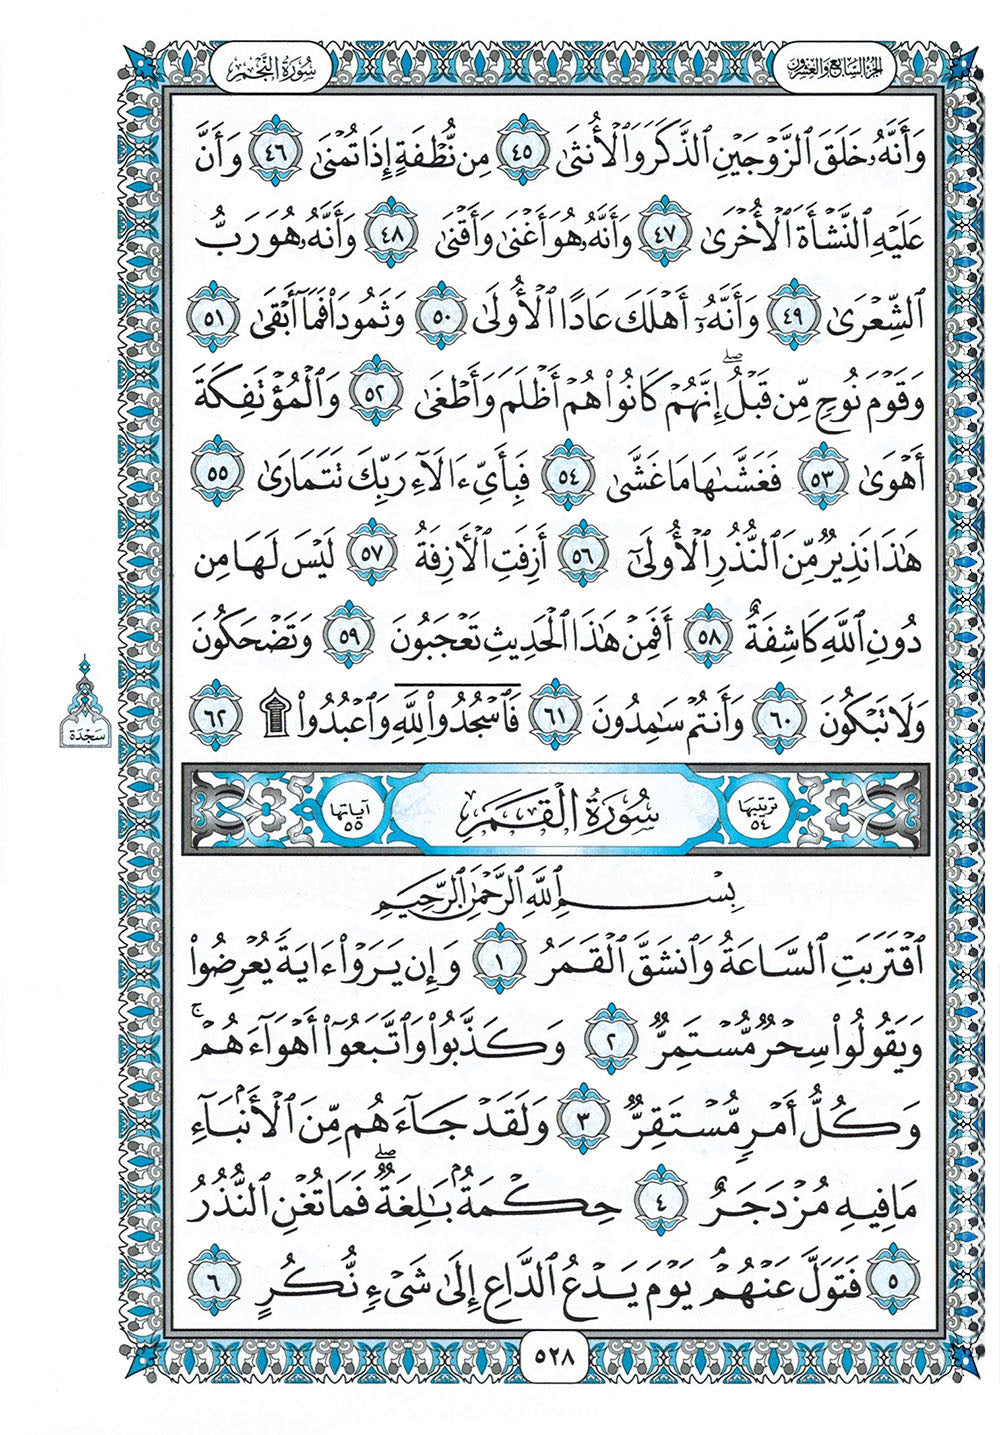 الجزء السابع والعشرون
سورة النجم
وَأَنَّهُۥ خَلَقَ ٱلزَّوْجَيْنِ ٱلذَّكَرَ وَٱلْأُنثَىٰ ٤٥ مِن نُّطْفَةٍ إِذَا تُمْنَىٰ ٤٦ وَأَنَّ
عَلَيْهِ ٱلنَّشْأَةَ ٱلْأُخْرَىٰ ٤٧ وَأَنَّهُۥ هُوَ أَغْنَىٰ وَأَقْنَىٰ ٤٨ وَأَنَّهُۥ هُوَ رَبُّ
ٱلشِّعْرَىٰ ٤٩ وَأَنَّهُۥٓ أَهْلَكَ عَادًا ٱلْأُولَىٰ ٥٠ وَثَمُودَا۟ فَمَآ أَبْقَىٰ ٥١
وَقَوْمَ نُوحٍ مِّن قَبْلُ ۖ إِنَّهُمْ كَانُوا۟ هُمْ أَظْلَمَ وَأَطْغَىٰ ٥٢ وَٱلْمُؤْتَفِكَةَ
أَهْوَىٰ ٥٣ فَغَشَّىٰهَا مَا غَشَّىٰ ٥٤ فَبِأَىِّ ءَالَآءِ رَبِّكَ تَتَمَارَىٰ ٥٥
هَٰذَا نَذِيرٌ مِّنَ ٱلنُّذُرِ ٱلْأُولَىٰٓ ٥٦ أَزِفَتِ ٱلْـَٔازِفَةُ ٥٧ لَيْسَ لَهَا مِن
دُونِ ٱللَّهِ كَاشِفَةٌ ٥٨ أَفَمِنْ هَٰذَا ٱلْحَدِيثِ تَعْجَبُونَ ٥٩ وَتَضْحَكُونَ
وَلَا تَبْكُونَ ٦٠ وَأَنتُمْ سَٰمِدُونَ ٦١ فَٱسْجُدُوا۟ لِلَّهِ وَٱعْبُدُوا۟ ۩ ٦٢
سجدة
ترتيبها ٥٤
سُورَةُ الْقَمَرِ
آياتها ٥٥
بِسْمِ ٱللَّهِ ٱلرَّحْمَٰنِ ٱلرَّحِيمِ
ٱقْتَرَبَتِ ٱلسَّاعَةُ وَٱنشَقَّ ٱلْقَمَرُ ١ وَإِن يَرَوْا۟ ءَايَةً يُعْرِضُوا۟
وَيَقُولُوا۟ سِحْرٌ مُّسْتَمِرٌّ ٢ وَكَذَّبُوا۟ وَٱتَّبَعُوٓا۟ أَهْوَآءَهُمْ ۚ
وَكُلُّ أَمْرٍ مُّسْتَقِرٌّ ٣ وَلَقَدْ جَآءَهُم مِّنَ ٱلْأَنۢبَآءِ
مَا فِيهِ مُزْدَجَرٌ ٤ حِكْمَةٌۢ بَٰلِغَةٌ ۖ فَمَا تُغْنِ ٱلنُّذُرُ
٥ فَتَوَلَّ عَنْهُمْ ۘ يَوْمَ يَدْعُ ٱلدَّاعِ إِلَىٰ شَىْءٍ نُّكُرٍ ٦
٥٢٨